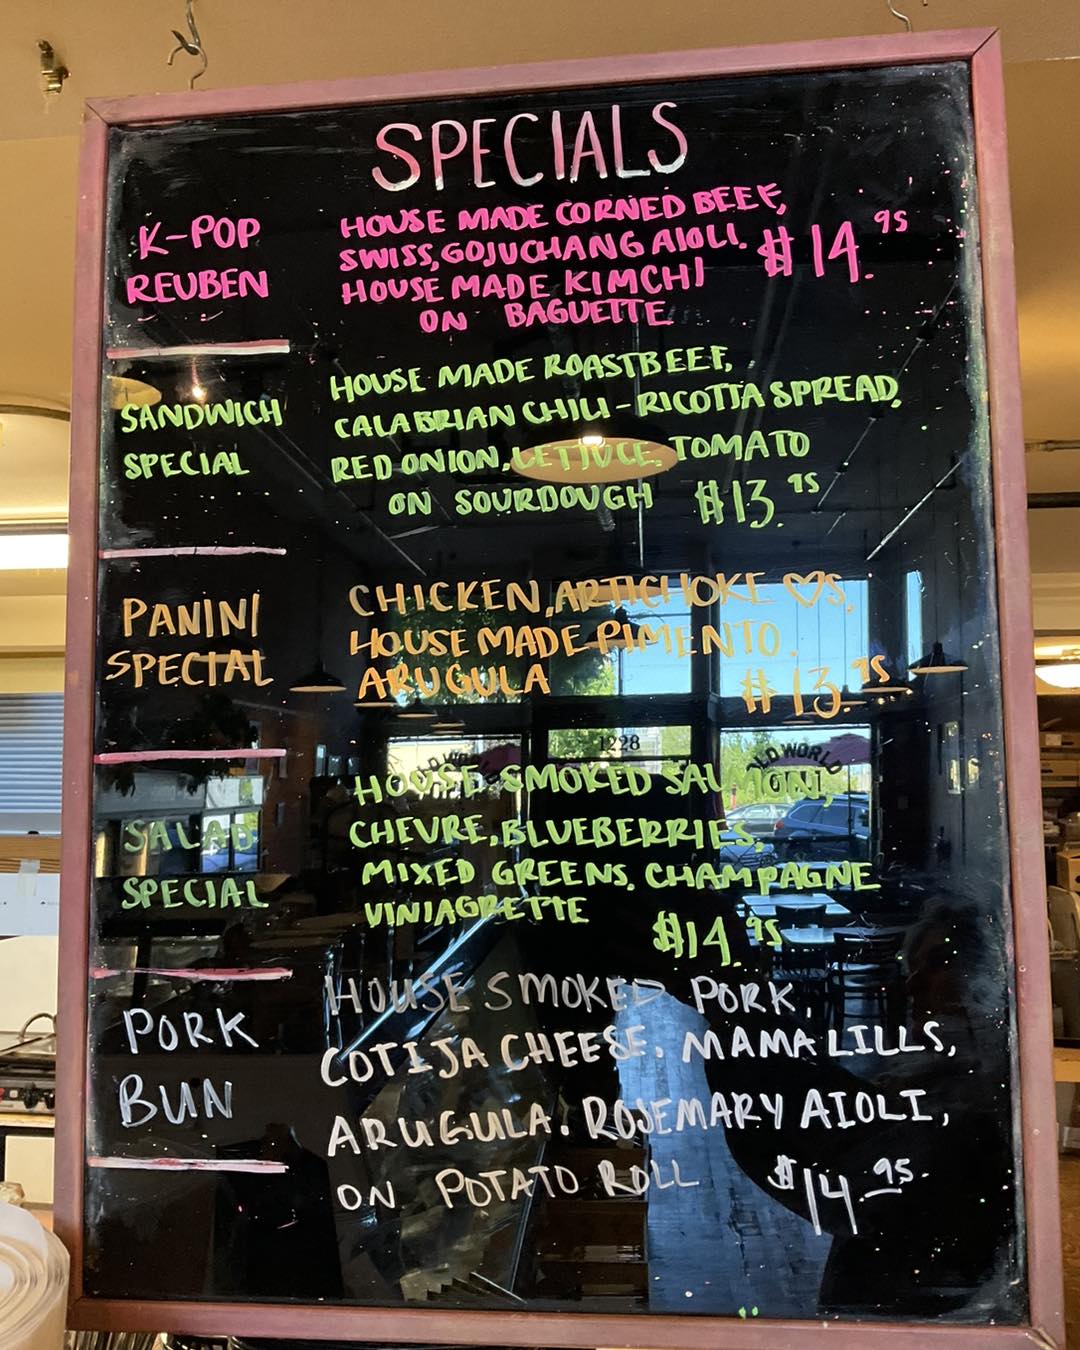 SPECIALS
K-POP
REUBEN
HOUSE MADE CORNED BEEF,
SWISS, GOJUCHANG AIOLI.
HOUSE MADE KIMCHI
ON BAGUETTE
$14.95
SANDWICH
SPECIAL
HOUSE MADE ROASTBEEF,
CALABRIAN CHILI-RICOTTA SPREAD,
RED ONION, LETTUCE, TOMATO
ON SOURDOUGH $13.95
PANINI
SPECIAL
CHICKEN, ARTICHOKE ♡S,
HOUSE MADE PIMENTO.
ARUGULA $13.95
SALAD
SPECIAL
HOUSE SMOKED SALMON,
CHEVRE, BLUEBERRIES,
MIXED GREENS. CHAMPAGNE
VINIAGRETTE
$14.95
PORK
BUN
HOUSE SMOKED PORK,
COTIJA CHEESE, MAMA LILLS,
ARUGULA. ROSEMARY AIOLI,
ON POTATO ROLL $14.95
1228
OLD WORLD